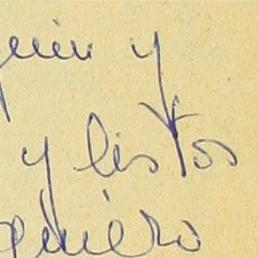 y
y listos
quiero